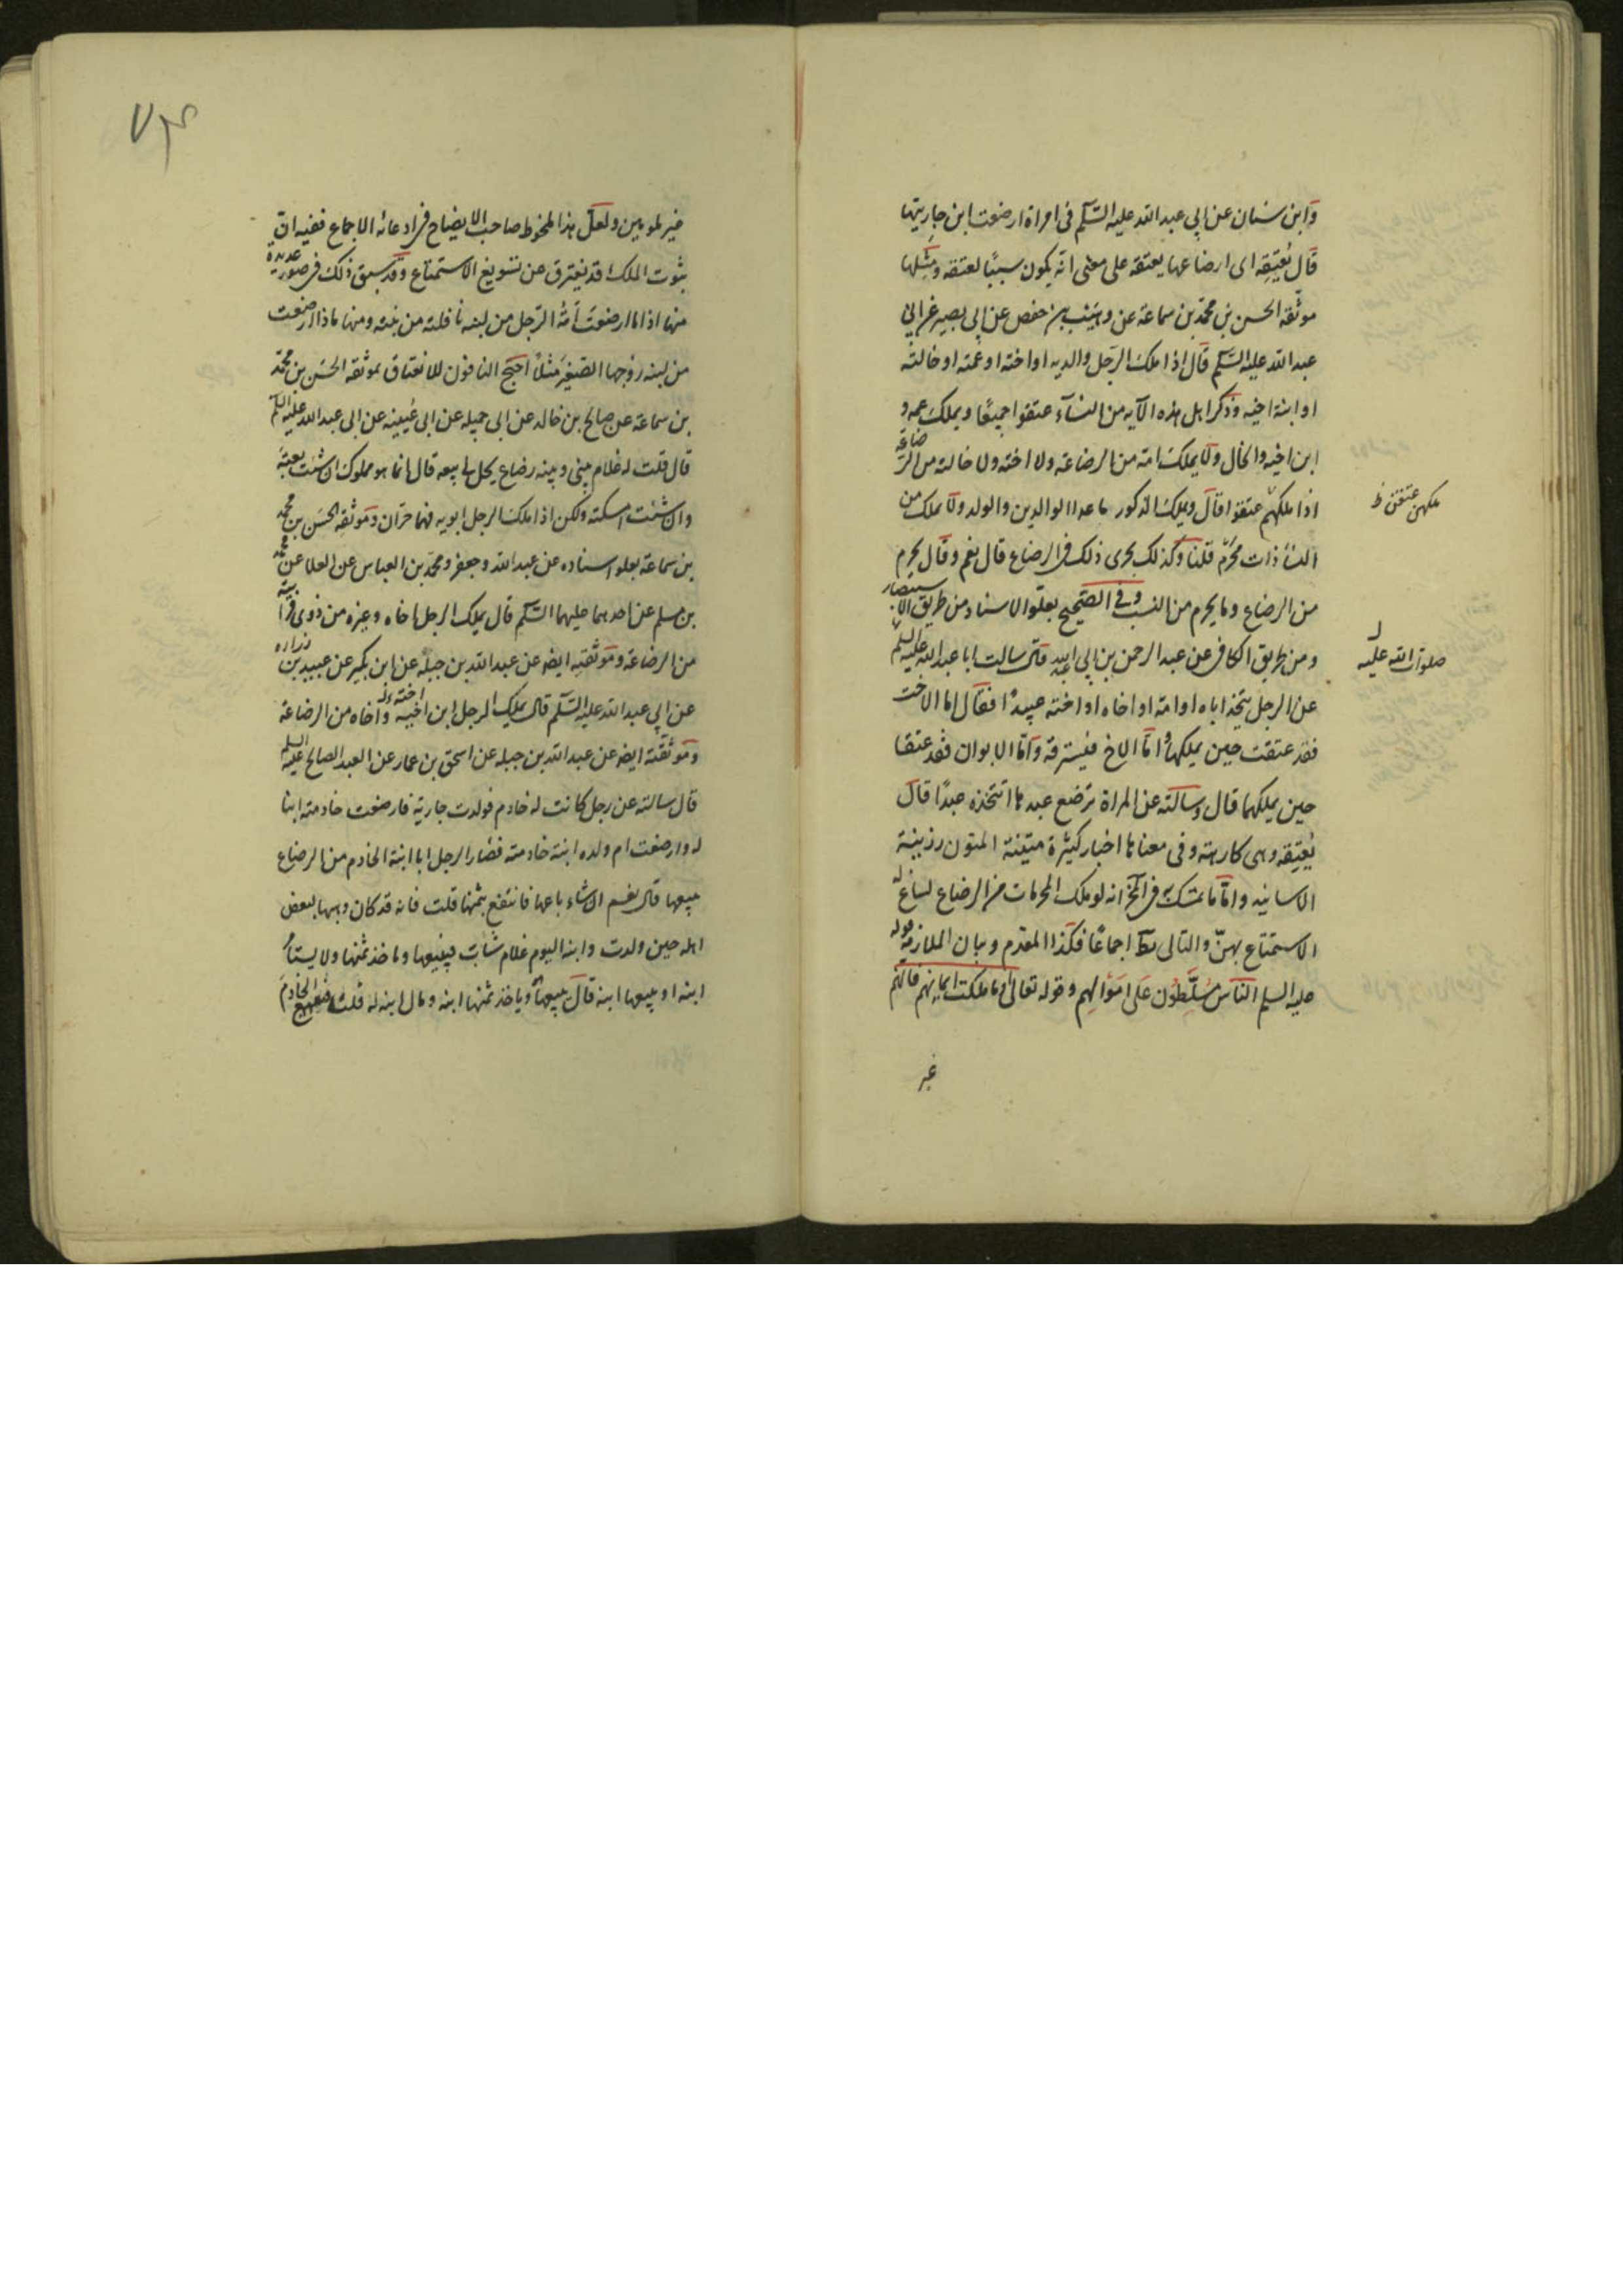 وابن سنان عن ابي عبد الله عليه السّلم في امراة ارضعت ابن جاريتها
قال تُعتِقه اى ارضاعها يعتقه على معنى انّه يكون سببًا لعتقه ومثلها
موثّقه الحسن بن محمّد بن سماعة عن وهيب بن حفص عن ابي بصير عن ابي
عبد الله عليه السّلم قال اذا ملك الرّجل والديه او اخته او عمّته او خالته
او ابنة اخيه وذكر اهل هذه الآية من النسآء عتقوا جميعًا ويملك عمه و
ابن اخيه والخال ولا يملك امه من الرضاعة ولا اخته ولا خالته من الرّضاعة
اذا ملكهم عتقوا قال ويملك الذكور ما عدا الوالدين والولد ولا يملك من
ملكهن عتقن ظ
النسآء ذات محرم قلنا وكذلك يجرى ذلك في الرضاع قال نعم وقال يحرم
من الرضاع ما يحرم من النسب وفي الصّحيح بعلوّ الاسناد من طريق الاستبصار
ومن طريق الكافي عن عبد الرحمن بن ابي عبد الله قال سالت ابا عبد الله عليه السلم
صلوات الله عليه
عن الرجل يتّخذ اباه او امه او اخاه او اخته عبيدًا فقال اما الاخت
فقد عتقت حين يملكها وامّا الاخ فيسترقه وامّا الابوان فقد عتقا
حين يملكهما قال وسالته عن المراة ترضع عبدها اتتخذه عبدًا قال
تُعتِقه وهي كارهة وفي معناها اخبار كثيرة متينة المتون رزينة
الاسانيد وامّا ما تمسّك به في انه لو ملك المحرمات من الرضاع لساغ له
الاستمتاع بهنّ والتالى بط اجماعًا فكذا المقدم وبيان الملازمة قوله
عليه السلم النّاس مُسَلَّطُون عَلَى امْوَالِهم وقوله تعالى او ما ملكت ايمانهم فانّهم
غير
غير ملومين ولعلّ هذا صاحب الايضاح في ادعائه الاجماع ففيه انّ
ثبوت الملك قد يفترق عن تسويغ الاستمتاع وقد سبق ذلك في صور عديدة
منها اذا ما ارضعت امَةُ الرّجل من لبنه نافلته من بنته ومنها ما اذا ارضعت
من لبنه زوجها الصّغير مثلًا احتجّ النافون للانعتاق بموثقه الحسن بن محمّد
بن سماعة عن صالح بن خالد عن ابي جميله عن ابي عُيينه عن ابي عبد الله عليه السّلم
قال قلت له غلام بيني وبينه رضاع يحل لي بيعه قال انما هو مملوك ان شئت بعته
وان شئت امسكته ولكن اذا ملك الرجل ابويه فهما حرّان وموثقه الحسن بن محمد
بن سماعة بعلو اسناده عن عبد الله وجعفر ومحمّد بن العباس عن العلا عن محمد
بن مسلم عن احدهما عليهما السّلم قال يملك الرجل اخاه وغيره من ذوى قرابته
من الرضاعة وموثقته ايضا عن عبد الله بن جبله عن ابن بكير عن عبيد بن زراره
عن ابي عبد الله عليه السّلم قال يملك الرجل ابن اخيه واخاه من الرضاعة
اخته
وموثقته ايضا عن عبد الله بن جبله عن اسحق بن عمار عن العبد الصالح عليه السلم
قال سالته عن رجل كانت له خادم فولدت جارية فارضعت خادمته ابنا
له وارضعت ام ولده ابنة خادمته فصار الرجل ابا ابنة الخادم من الرضاع
يبيعها قال نعم ان شاء باعها فانتفع بثمنها قلت فانه قد كان وهبها لبعض
اهله حين ولدت وابنه اليوم غلام شابّ فيبيعها وياخذ ثمنها ولا يستأمر
ابنه او يبيعها ابنه قال يبيعها هو وياخذ ثمنها ابنه ومال ابنه له قلت فيبيع الخادم